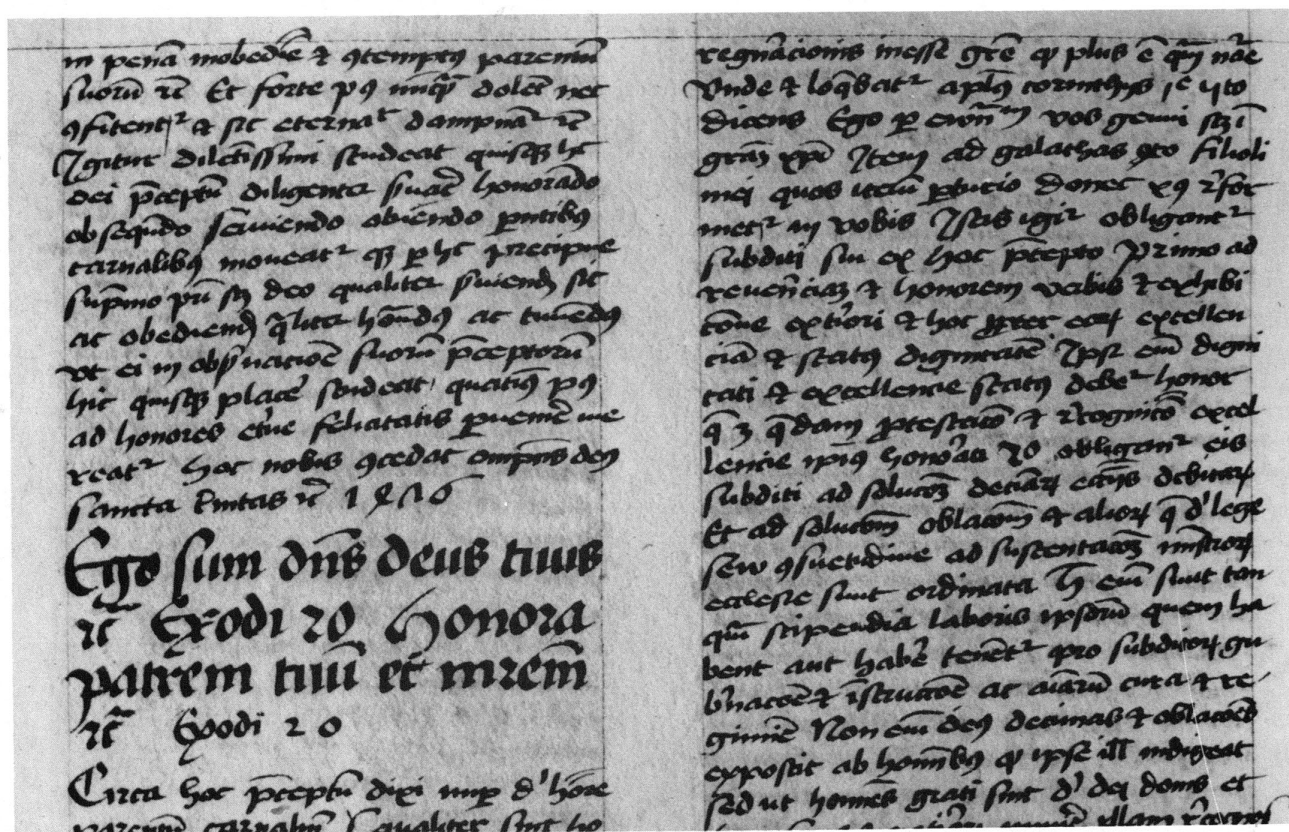 in penā inobediē⁊ ꝯtemptꝰ parentū
suorū ⁊c̄ Et forte pꝰ nūqᷓ dolēt nec
ꝯfitentʳ ⁊ sic eternalʳ dampnātʳ ⁊c̄
Igitur dilectissimi studeat quisqꝫ hc
dei p̄ceptū diligenter ẜuare honorādo
obsequēdo serviendo obiendo pntibꝰ
carnalibꝰ moveatʳ qꝫ ꝑ hc precipue
sup̄mo pr̄i scꝫ deo qualiter ẜuiendū sit
ac obediendū qᷓliter honōdꝰ ac timendꝰ
ut ei in obẜuacioē suorū p̄ceptorū
hic quisqꝫ place studeat quatinꝰ pꝰ
ad honores etne felicitatis ꝑuenire me
reatʳ hoc nobis ꝯcedat omnpns deꝰ
sancta trinitas ⁊c̄
Ego sum dn̄s deus tuus
⁊c̄ Exodi 20 Honora
patrem tuū et mrem
⁊c̄ Exodi 20
Circa hoc p̄ceptū dixi nuꝑ d' hōre
parentū carnaliū qualiter sint ho
regnācionis inesse grē qꝫ plus ē qᷓm nāe
Unde ⁊ loqbatʳ aplꝰ corinthijs
dicens Ego ꝑ ewm vos genui scꝫ ī
grām xpi Item ad galathas 4to Filioli
mei quos iterū ꝑturio donec xꝰ ꝛfor
metʳ in vobis Istis igiʳ obligantʳ
subditi sui ex hoc p̄cepto Primo ad
revenciaꝫ ⁊ honorem verbis ⁊ exhibi
cōne extiori ⁊ hoc ꝓpter eoꝝ excellen
ciā ⁊ statꝰ dignitatē Ipsi eīm digni
tati ⁊ excellencie statꝰ debeʳ honor
qᷓ ꝫ qᷓdam ꝓtestacō ⁊ recognicō excel
lencie ipiꝰ honorati 20 obliganʳ eis
subditi ad solucōꝫ deciāꝝ ecciijs debitaꝝ
Et ad solucōm oblacōm ⁊ alioꝝ q̄ d' lege
sew ꝯsuetudine ad sustentacōꝫ mīstroꝝ
ecclesie sunt ordinata h̄ eīm sunt tan
quā stipendia laboris ipsorū quem ha
bent aut habē tenētʳ pro subditoꝝ gu
bnacōe ⁊ īstructōe ac aīarū cura ⁊ re
gimīe Non eīm deꝰ decimas ⁊ oblacōes
exposcit ab hominibꝰ qꝫ ipse ill indigeat
sed ut homīes grati sint d' dei donis et